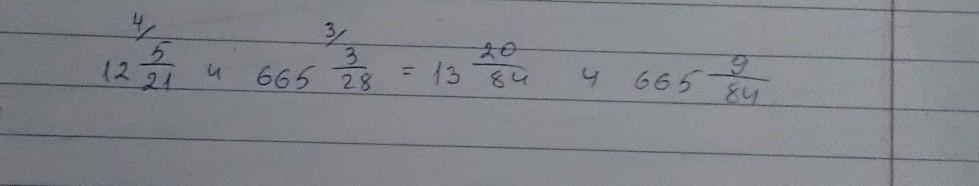 4/ 3/
12 5/21 и 665 3/28 = 13 20/84 и 665 9/84